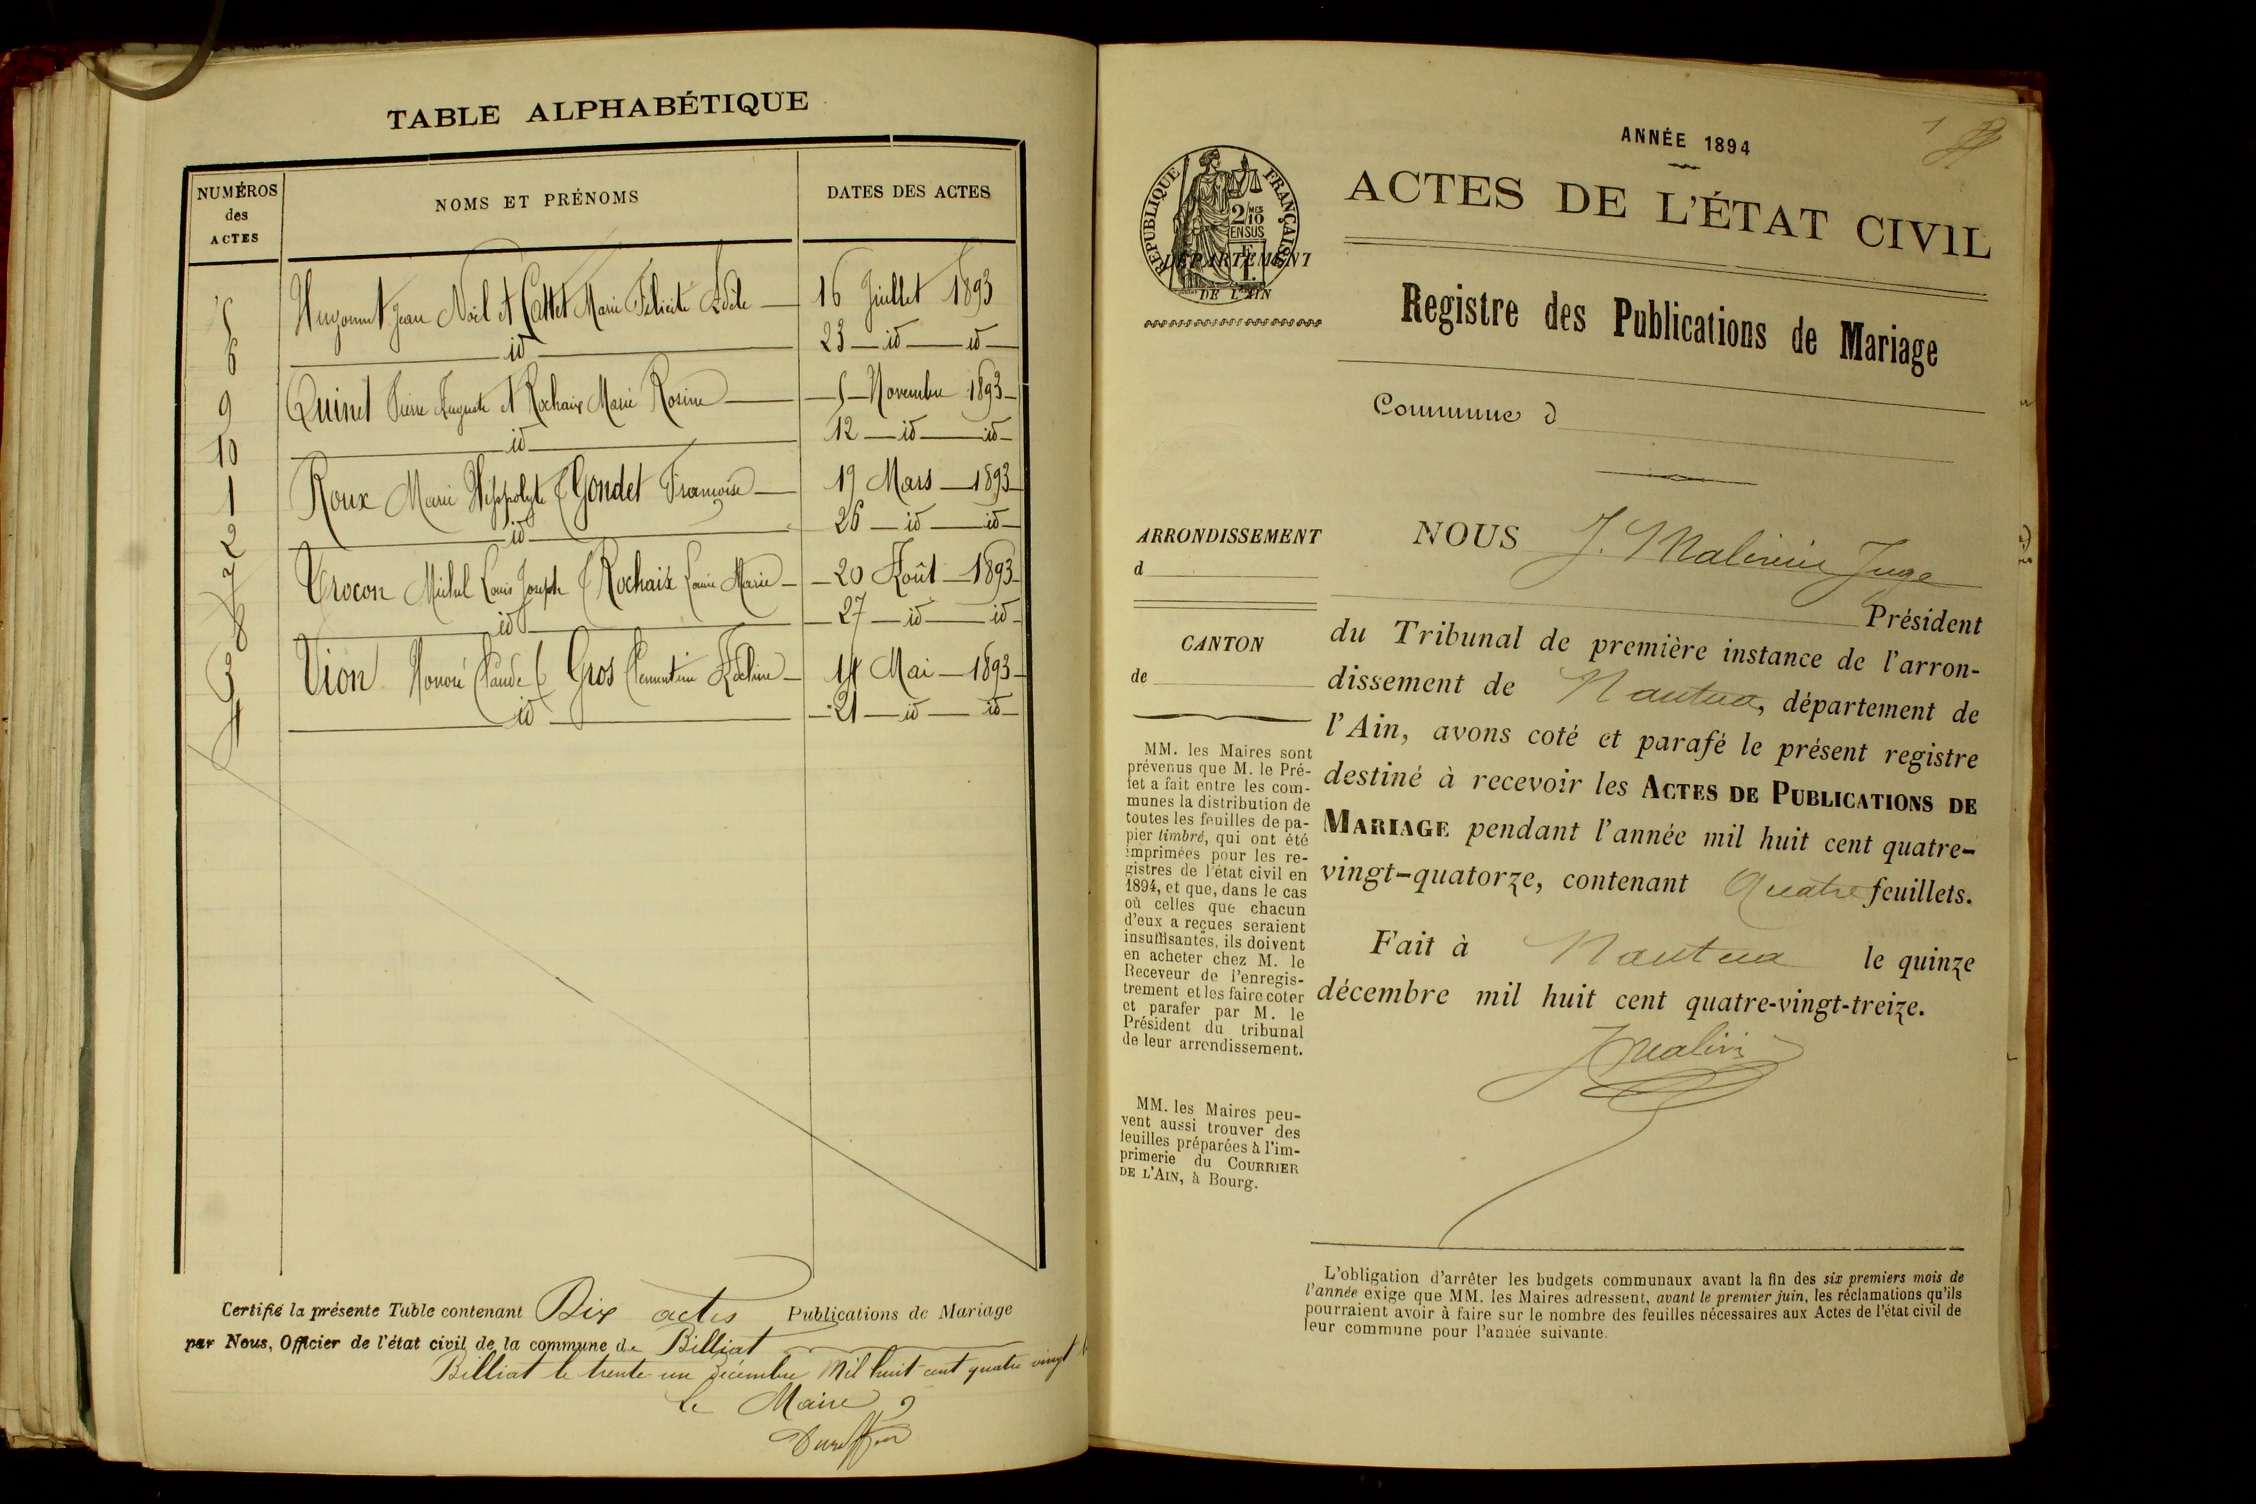 TABLE ALPHABÉTIQUE
NUMÉROS
des
ACTES
NOMS ET PRÉNOMS
DATES DES ACTES
5 Hugonnet Jean Noël et Cattet Marie Félicité Adèle 16 Juillet 1893
6 id 23 id id
9 Quinet Pierre Auguste et Rochaix Marie Rosine 5 Novembre 1893
10 id 12 id id
1 Roux Marie Hippolyte & Gondet Françoise 19 Mars 1893
2 id 26 id id
7 Trocon Michel Louis Joseph & Rochaix Louise Marie 20 Août 1893
8 id 27 id id
3 Vion Honoré Claude & Gros Clémentine Adeline 14 Mai 1893
4 id 21 id id
Certifié la présente Table contenant Dix actes Publications de Mariage
par Nous, Officier de l'état civil de la commune de Billiat
Billiat le trente un décembre Mil huit cent quatre vingt
Le Maire
ANNÉE 1894
1
ACTES DE L'ÉTAT CIVIL
RÉPUBLIQUE FRANÇAISE
2/10 MES
EN SUS
DÉPARTEMENT
DE L'AIN
Registre des Publications de Mariage
Commune d
ARRONDISSEMENT
d
CANTON
de
MM. les Maires sont
prévenus que M. le Pré-
fet a fait entre les com-
munes la distribution de
toutes les feuilles de pa-
pier timbré, qui ont été
imprimées pour les re-
gistres de l'état civil en
1894, et que, dans le cas
où celles que chacun
d'eux a reçues seraient
insuffisantes, ils doivent
en acheter chez M. le
Receveur de l'enregis-
trement et les faire coter
et parafer par M. le
Président du tribunal
de leur arrondissement.
MM. les Maires peu-
vent aussi trouver des
feuilles préparées à l'im-
primerie du COURRIER
DE L'AIN, à Bourg.
NOUS J. Juge
Président
du Tribunal de première instance de l'arron-
dissement de Nantua, département de
l'Ain, avons coté et parafé le présent registre
destiné à recevoir les ACTES DE PUBLICATIONS DE
MARIAGE pendant l'année mil huit cent quatre-
vingt-quatorze, contenant Quatre feuillets.
Fait à Nantua le quinze
décembre mil huit cent quatre-vingt-treize.
L'obligation d'arrêter les budgets communaux avant la fin des six premiers mois de
l'année exige que MM. les Maires adressent, avant le premier juin, les réclamations qu'ils
pourraient avoir à faire sur le nombre des feuilles nécessaires aux Actes de l'état civil de
leur commune pour l'année suivante.